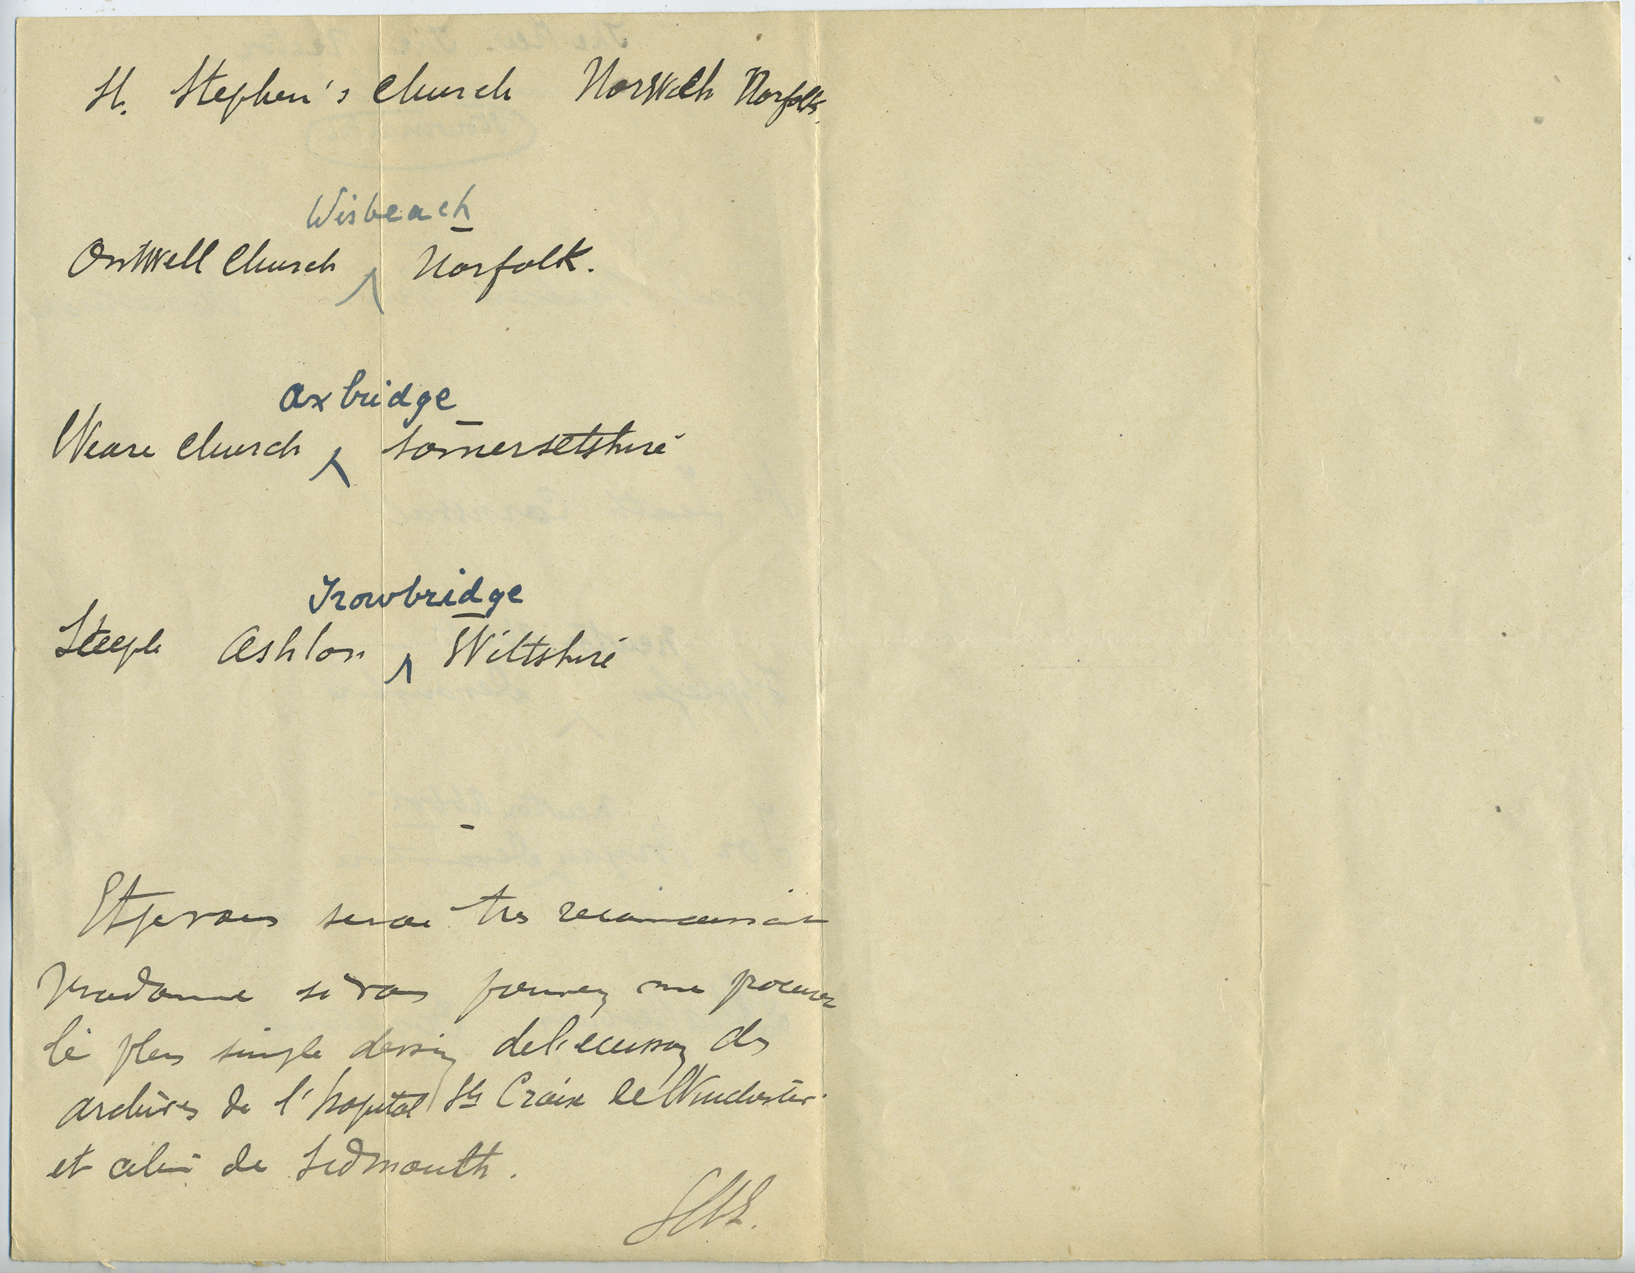 St. Stephen's Church Norwich Norfolk.
Wisbeach
Outwell Church Norfolk.
Axbridge
Weare Church Somersetshire
Trowbridge
Steeple Ashton Wiltshire
Et je vous serai très reconnaissant
Madame si vous pouvez me procurer
le plus simple dessin de l'écusson des
archives de l'hopital Ste Croix de Winchester
et celui de Sidmouth.